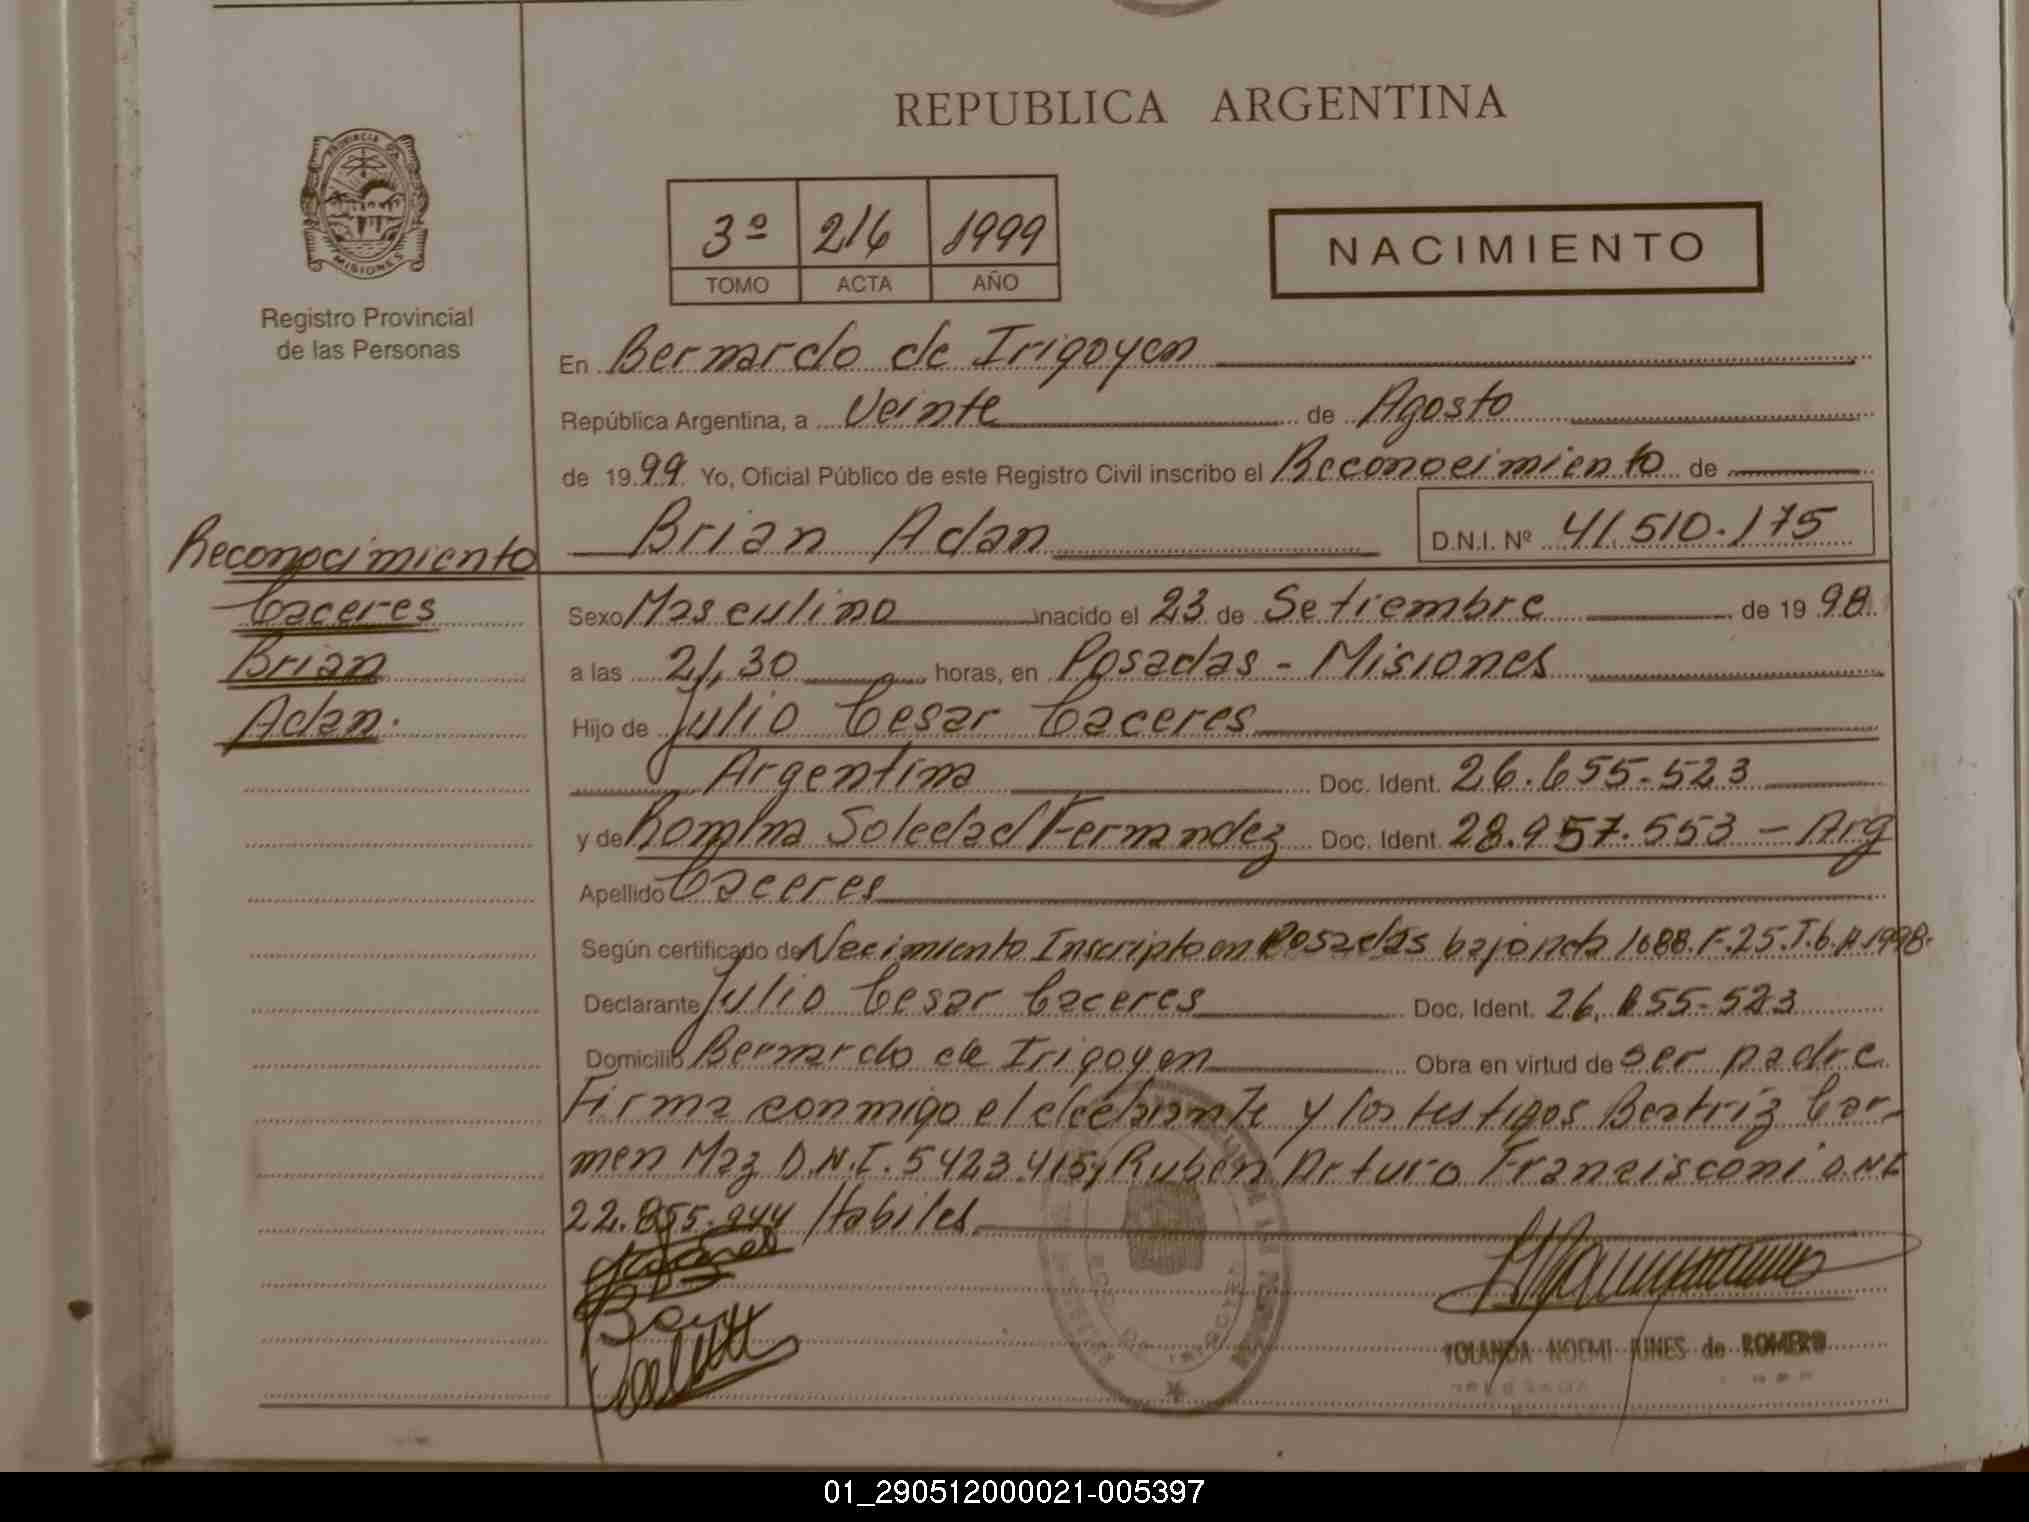 REPUBLICA ARGENTINA
PROVINCIA DE
MISIONES
Registro Provincial
de las Personas
3º 216 1999
TOMO ACTA AÑO
NACIMIENTO
En Bernardo de Irigoyen
República Argentina, a Veinte de Agosto
de 1999 Yo, Oficial Público de este Registro Civil inscribo el Reconocimiento de
Brian Adan D.N.I. Nº 41.510.175
Reconocimiento
Caceres
Brian
Adan.
Sexo Masculino nacido el 23 de Setiembre de 1998
a las 21,30 horas, en Posadas - Misiones
Hijo de Julio Cesar Caceres
Argentina Doc. Ident. 26.655.523
y de Romina Soledad Fernandez Doc. Ident. 28.957.553 - Arg
Apellido Caceres
Según certificado de Necimiento Inscripto en Posadas bajo 1688. F. 25. T. 6. A. 1998.
Declarante Julio Cesar Caceres Doc. Ident. 26.655-523
Domicilio Bernardo de Irigoyen Obra en virtud de ser padre
Firma conmigo el y los testigos Beatriz Car-
men Maz D.N.I. 5423.415 y Ruben Arturo Franzisconi D.N.I.
22.855.944 Habiles
YOLANDA NOEMI de ROMERO
01_290512000021-005397